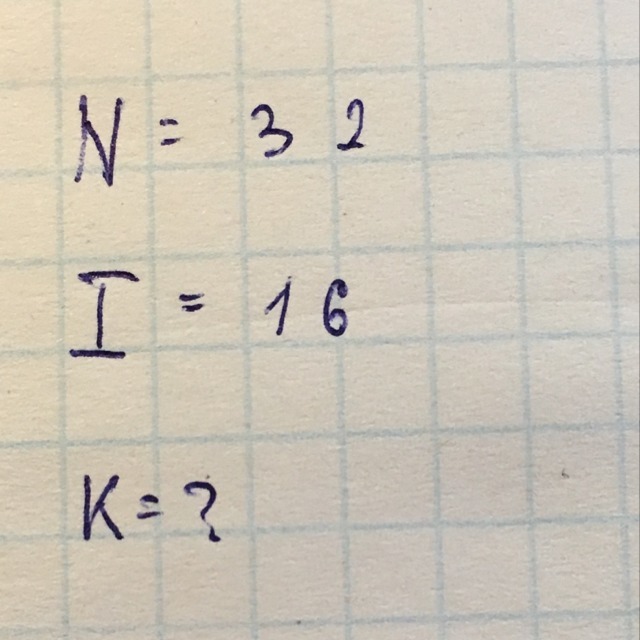 N = 32
I = 16
K = ?